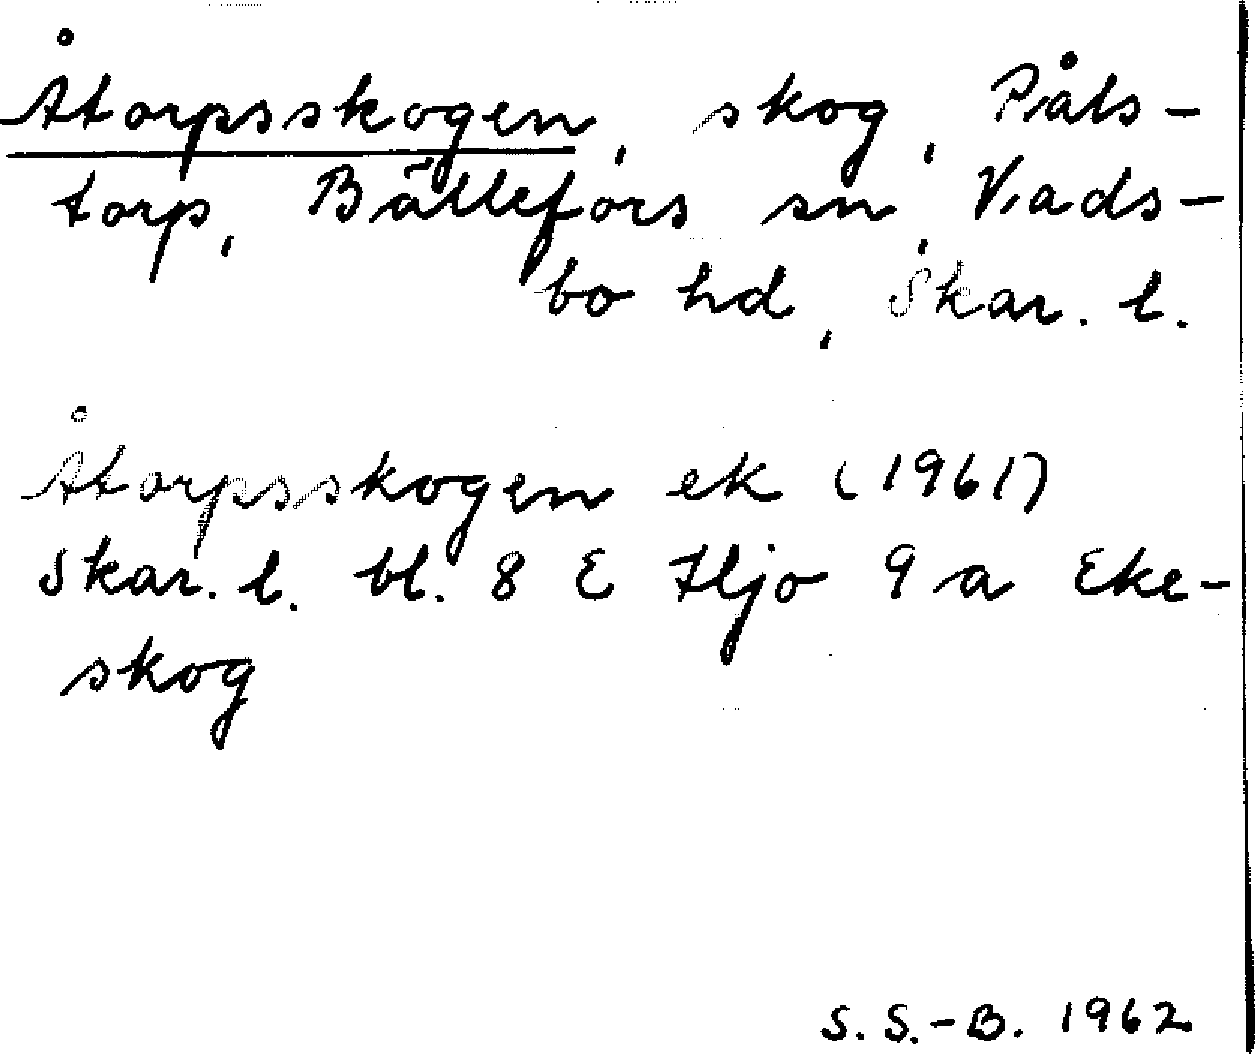 Åtorpsskogen, skog, Påls-
torp, Bällefors sn, Vads-
bo hd, Skar. l.
Åtorpsskogen ek (1961)
Skar. l. bl. 8 E Hjo 9 a Eke-
skog
S. S.-B. 1962